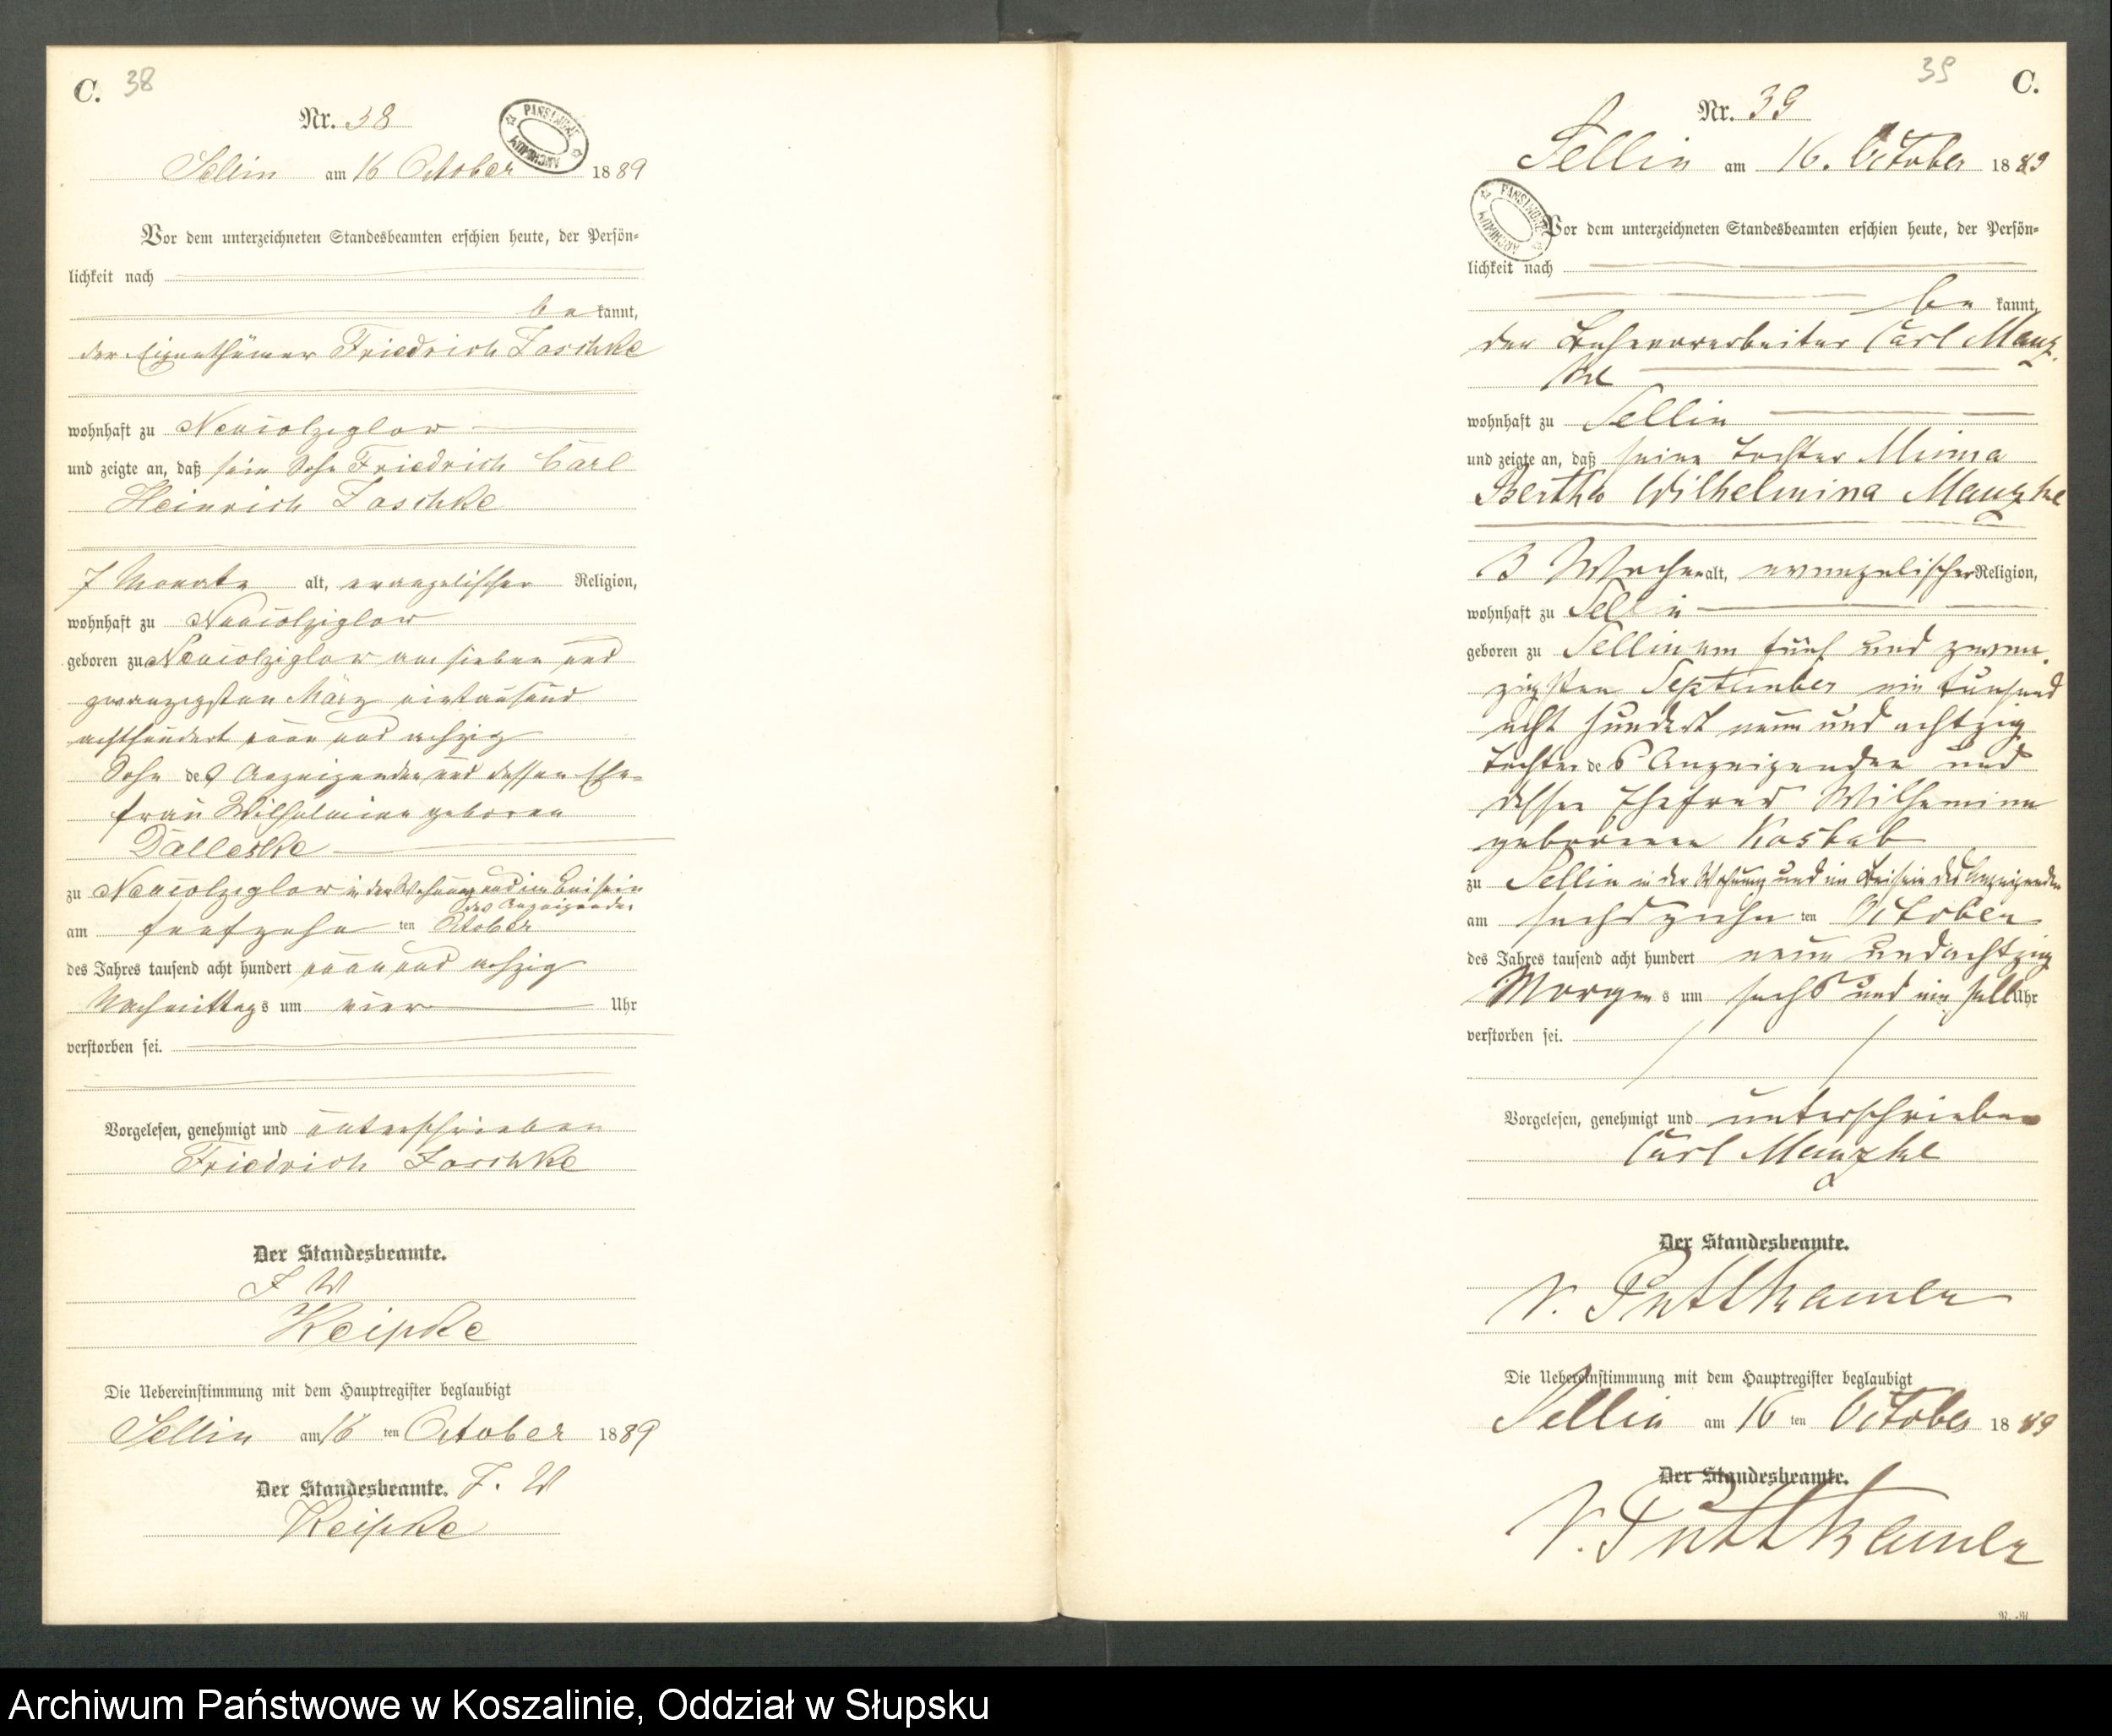 C. 38
Nr. 38
PAŃSTWOWE ARCHIWUM
Sellin am 16 October 1889
Vor dem unterzeichneten Standesbeamten erschien heute, der Persön=
lichkeit nach
be kannt,
der Eigenthümer Friedrich Jaschke
wohnhaft zu Neujolzeglow
und zeigte an, daß sein Sohn Friedrich Carl
Heinrich Jaschke
7 Monate alt, evangelischer Religion,
wohnhaft zu
geboren zu am sieben und
zwanzigsten März eintausend
achthundert neun und achzig
Sohn des Anzeigenden und dessen Ehe=
frau Wilhelmine geboren
zu in der Wohnung und im Beisein
des Anzeigenden
am funfzehn ten October
des Jahres tausend acht hundert neun und achzig
Nachmittags um vier Uhr
verstorben sei.
Vorgelesen, genehmigt und unterschrieben
Friedrich Jaschke
Der Standesbeamte.
Keipke
Die Uebereinstimmung mit dem Hauptregister beglaubigt
Sellin am 16 ten October 1889
Der Standesbeamte.
Keipke
39 C.
Nr. 39
Sellin am 16. October 1889
PAŃSTWOWE ARCHIWUM
Vor dem unterzeichneten Standesbeamten erschien heute, der Persön=
lichkeit nach
be kannt,
der Carl Manz
ke
wohnhaft zu Sellin
und zeigte an, daß seine Tochter Minna
Bertha Wilhelmina Manzke
3 Wochen alt, evangelischer Religion,
wohnhaft zu Sellin
geboren zu Sellin am fünf und zwan
zigsten September ein tausend
acht hundert neun und achtzig
Tochter des Anzeigenden und
dessen Ehefrau Wilhemine
geborenen
zu Sellin in der Wohnung und im Beisein des Anzeigenden
am sechszehn ten October
des Jahres tausend acht hundert neun und achtzig
Morgens um sechs und ein halb Uhr
verstorben sei.
Vorgelesen, genehmigt und unterschrieben
Carl Manzke
Der Standesbeamte.
v. Puttkamer
Die Uebereinstimmung mit dem Hauptregister beglaubigt
Sellin am 16 ten October 1889
Der Standesbeamte.
v. Puttkamer
Archiwum Państwowe w Koszalinie, Oddział w Słupsku